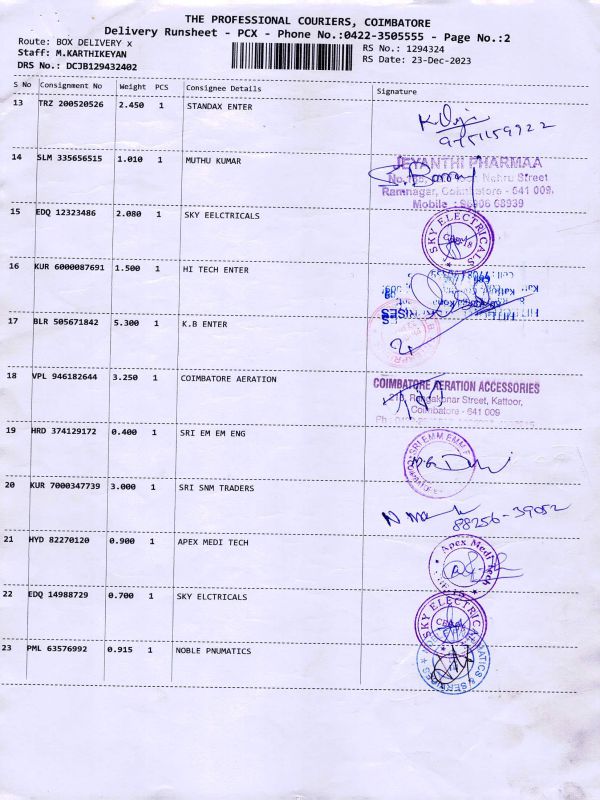 THE PROFESSIONAL COURIERS, COIMBATORE
Delivery Runsheet - PCX - Phone No.:0422-3505555 - Page No.:2
Route: BOX DELIVERY x
RS No.: 1294324
Staff: M.KARTHIKEYAN
RS Date: 23-Dec-2023
DRS No.: DCJB129432402
S No Consignment No Weight PCS Consignee Details Signature
13 TRZ 200520526 2.450 1 STANDAX ENTER
14 SLM 335656515 1.010 1 MUTHU KUMAR
JEYANTHI PHARMAA
Nehru Street
Ramnagar, Coimbatore - 641 009.
Mobile : 98906 68939
15 EDQ 12323486 2.080 1 SKY EELCTRICALS
SKY ELECTRICALS
16 KUR 6000087691 1.500 1 HI TECH ENTER
17 BLR 505671842 5.300 1 K.B ENTER
18 VPL 946182644 3.250 1 COIMBATORE AERATION
COIMBATORE AERATION ACCESSORIES
Street, Kattoor,
Coimbatore - 641 009
19 HRD 374129172 0.400 1 SRI EM EM ENG
SRI EMM EMM
20 KUR 7000347739 3.000 1 SRI SNM TRADERS
88256-39052
21 HYD 82270120 0.900 1 APEX MEDI TECH
Apex Medi Tech
22 EDQ 14988729 0.700 1 SKY ELCTRICALS
SKY ELECTRICALS
23 PML 63576992 0.915 1 NOBLE PNUMATICS
SERVICES